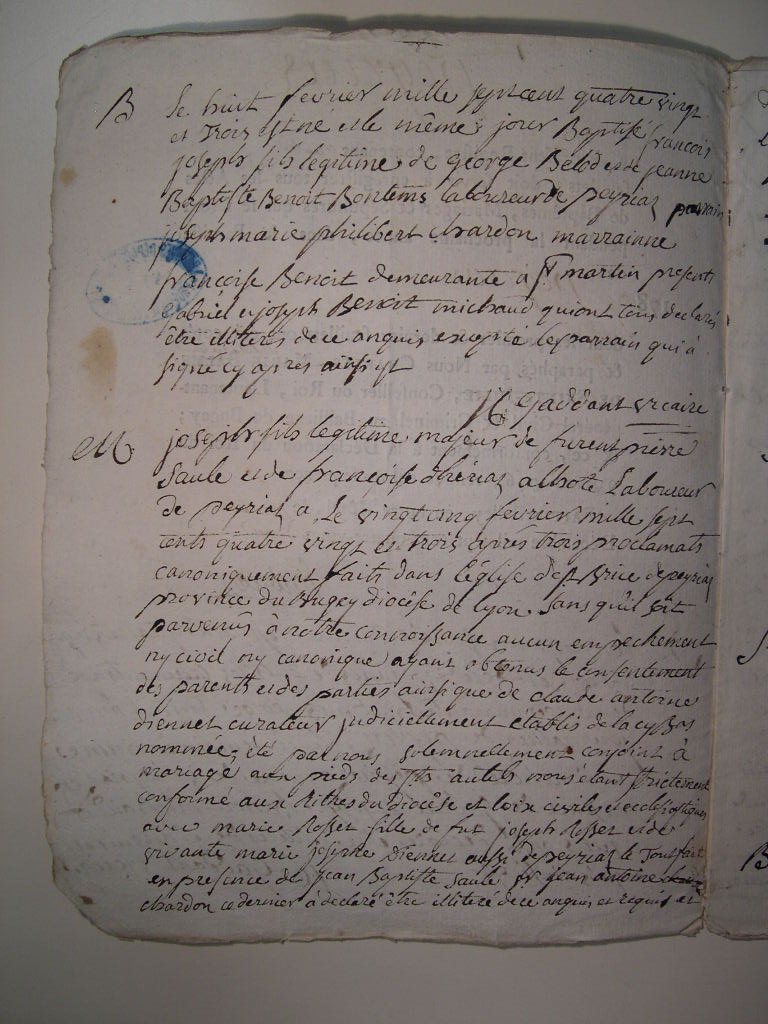 B
Le huit fevrier mille septcent quatre vingt
et Trois est né et le même jour Baptisé françois
joseph fils legitime de george Belod et de jeanne
Baptiste Benoit Bontems laboureur de peyriat parrain
joseph marie philibert chardon marrainne
françoise Benoit demeurante a st martin presents
gabriel et joseph Benoit michaud qui ont tous declarés
être illiterés de ce anquis excepté le parrain qui à
signé cy apres ainsi est
gaddant vicaire
M
joseph fils legitime majeur de furent pierre
Saule et de françoise d'hériat alhote Laboureur
de peyriat a Le vingt cinq fevrier mille sept
cents quatre vingt et trois après trois proclamats
canoniquement faits dans l'église de st Brice de peyriat
province du Bugey diocése de Lyon sans qu'il soit
parvenûs à nôtre connoissance aucun empechement
ny civil ny canonique ayant obtenus le consentement
des parents et des parties ainsi que de claude antoine
diennet curateur judiciellement établis de la cy bas
nommée, été par nous solemnellement conjoint à
mariage aux pieds des sts autels nous étant strictement
conformé aux Rithes du diocése et loix civiles et ecclésiastiques
avec marie Rosset fille de fut joseph Rosset et de
vivante marie josephe Diennet aussi de peyriat le Tout fait
en presence de jean Baptiste Saule jean antoine
chardon ce dernier à declaré être illiteré de ce anquis et requis et